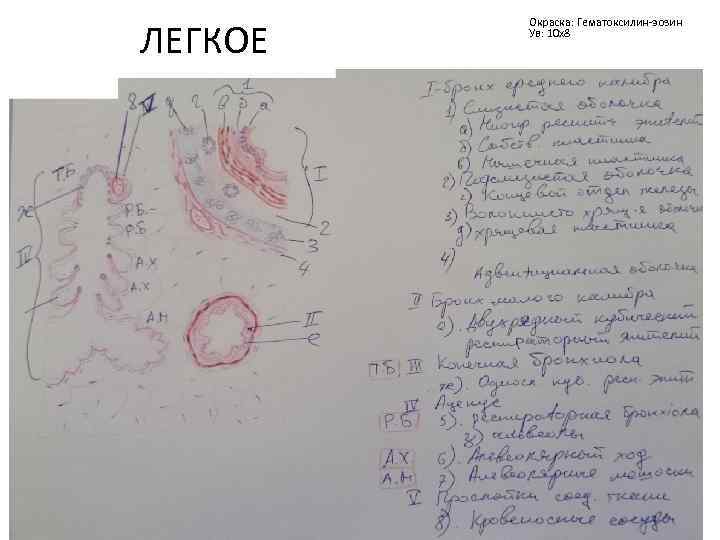 ЛЕГКОЕ
Окраска: Гематоксилин-эозин
Ув: 10х8
I-бронх среднего калибра
1) Слизистая оболочка
а) Многор. реснитч. эпителий
б) Собств. пластинка
в) Мышечная пластинка
2) Подслизистая оболочка
г) Концевой отдел железы
3) Волокнисто хрящ-я оболочка
д) хрящевая пластинка
4)
Адвентициальная оболочка
II Бронх малого калибра
е). Двухрядный кубический
респираторный эпителий
Т.Б III Конечная бронхиола
ж). Односл куб. ресн. эпит
IV Ацинус
Р.Б 5). Респираторная бронхиола
з) альвеолы
А.Х 6). Альвеолярный ход
А.М 7) Альвеолярные мешочки
V Прослойки соед. ткани
8). Кровеносные сосуды
8 V д г в б а
1
I
2
3
4
Т.Б
ж
Р.Б
Р.Б
IV
А.Х
А.Х
А.М
II
е